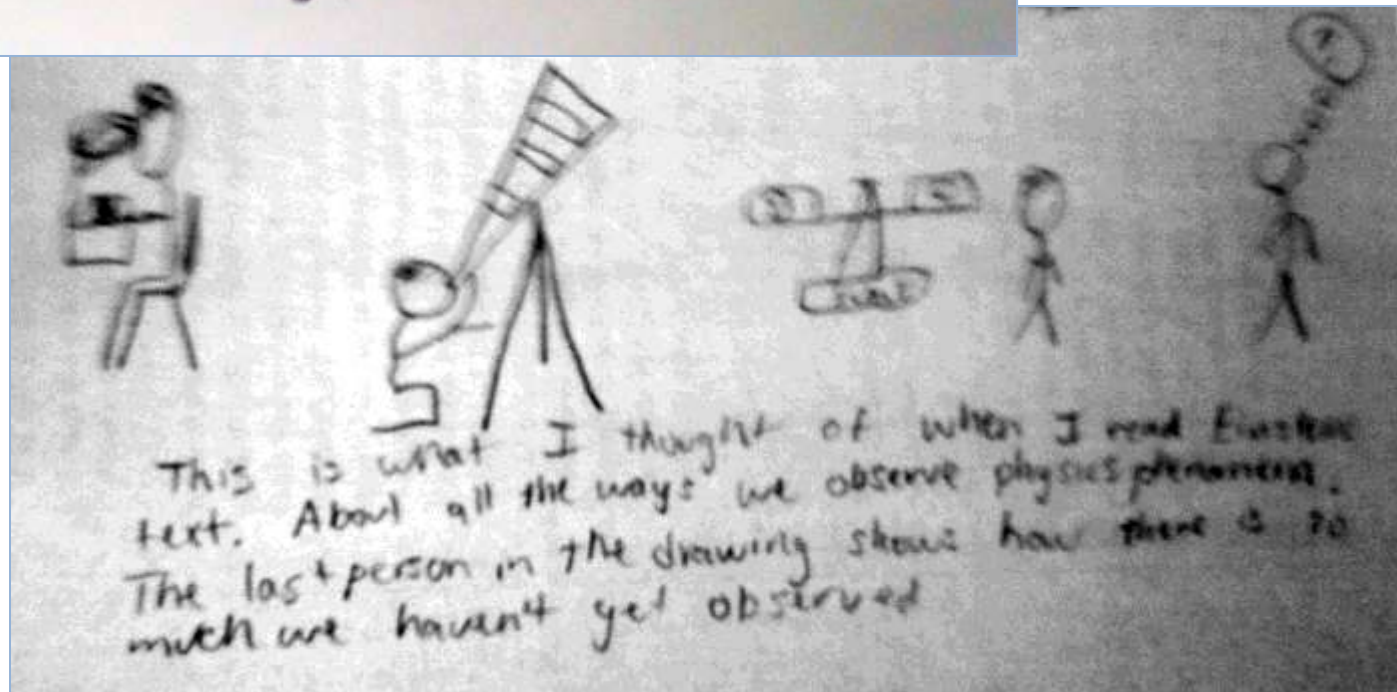 ?
This is what I thought of when I read Einsteins
text. About all the ways we observe physics phenomena.
The last person in the drawing shows how there is so
much we haven't yet observed